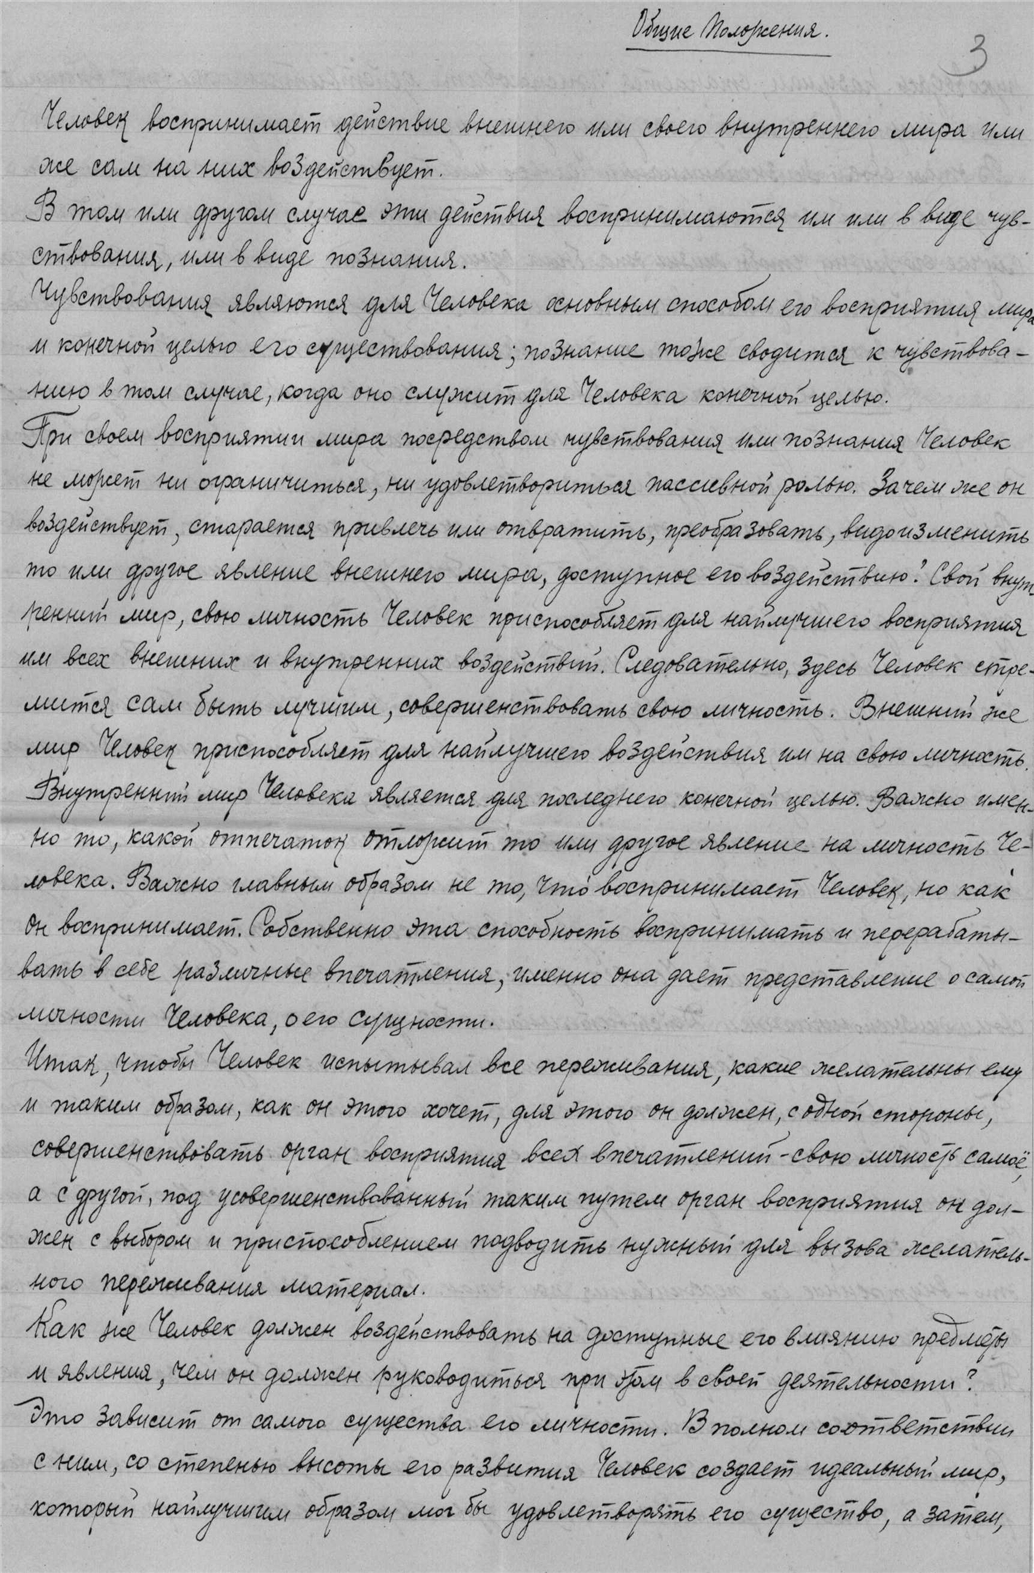 Общие Положения.
3
Человек воспринимает действие внешнего или своего внутреннего мира или
же сам на них воздействует.
В том или другом случае эти действия воспринимаются им или в виде чув-
ствования, или в виде познания.
Чувствования являются для Человека основным способом его восприятия мира
и конечной целью его существования; познание тоже сводится к чувствова-
нию в том случае, когда оно служит для Человека конечной целью.
При своем восприятии мира посредством чувствования или познания Человек
не может ни ограничиться, ни удовлетвориться пассивной ролью. Зачем же он
воздействует, старается привлечь или отвратить, преобразовать, видоизменить
то или другое явление внешнего мира, доступное его воздействию? Свой внут
ренний мир, свою личность Человек приспособляет для наилучшего восприятия
им всех внешних и внутренних воздействий. Следовательно, здесь Человек стре-
мится сам быть лучшим, совершенствовать свою личность. Внешний же
мир Человек приспособляет для наилучшего воздействия им на свою личность.
Внутренний мир Человека является для последнего конечной целью. Важно имен-
но то, какой отпечаток отложит то или другое явление на личность Че-
ловека. Важно главным образом не то, что воспринимает Человек, но как
он воспринимает. Собственно эта способность воспринимать и перерабаты-
вать в себе различные впечатления, именно она дает представление о самой
личности Человека, о его сущности.
Итак, чтобы Человек испытывал все переживания, какие желательны ему
и таким образом, как он этого хочет, для этого он должен, с одной стороны,
совершенствовать орган восприятия всех впечатлений - свою личность самоё,
а с другой, под усовершенствованный таким путем орган восприятия он дол-
жен с выбором и приспособлением подводить нужный для вызова желатель-
ного переживания материал.
Как же Человек должен воздействовать на доступные его влиянию предметы
и явления, чем он должен руководиться при этом в своей деятельности?
Это зависит от самого существа его личности. В полном соответствии
с ним, со степенью высоты его развития Человек создает идеальный мир,
который наилучшим образом мог бы удовлетворять его существо, а затем,